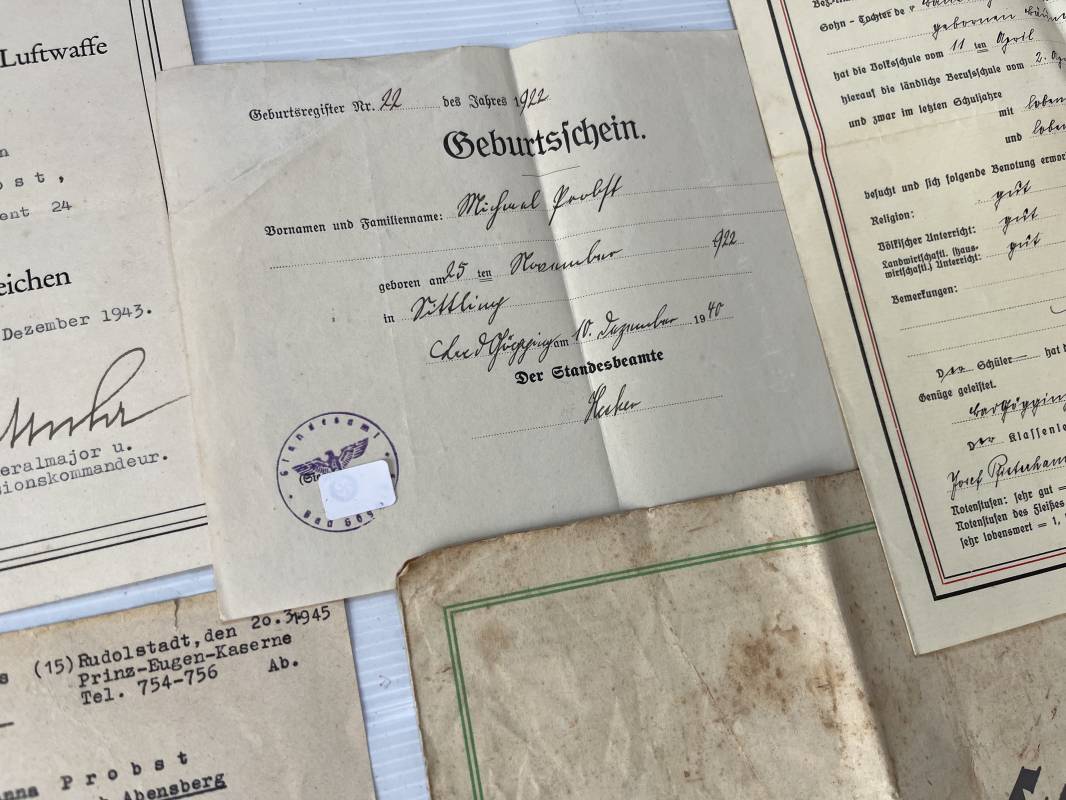 Luftwaffe
o b s t ,
ent 24
eichen
Dezember 1943.
eralmajor u.
sionskommandeur.
Geburtsregister Nr. 22 des Jahres 1922
Geburtsschein.
Vornamen und Familienname: Michael Probst
geboren am 25 ten November 922
in Sittling
am 10. Dezember 1940
Der Standesbeamte
Standesamt
Sohn - Tochter de
gebornen
hat die Volksschule vom 11 ten April
hierauf die ländliche Berufsschule vom 2.
und zwar im letzten Schuljahre
mit
und
besucht und sich folgende Benotung erwor
Religion: gut
Völkischer Unterricht: gut
Landwirtschaftl. (haus-
wirtschaftl.) Unterricht: gut
Bemerkungen:
Der Schüler hat d
Genüge geleistet.
Der Klassenle
Josef
Notenstufen: sehr gut =
Notenstufen des Fleißes
sehr lobenswert = 1,
s (15) Rudolstadt, den 20.3.1945
Prinz-Eugen-Kaserne
Tel. 754-756 Ab.
nna P r o b s t
Abensberg